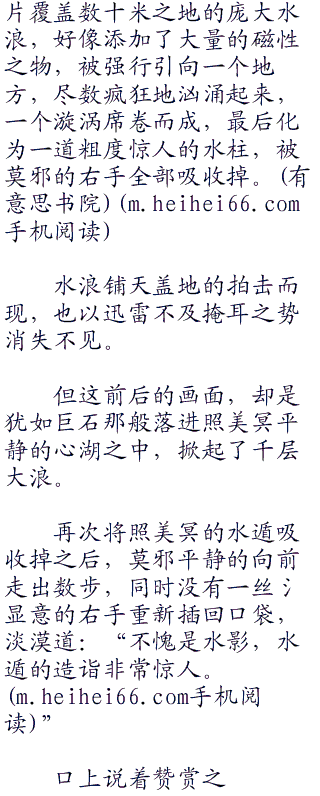 片覆盖数十米之地的庞大水
浪，好像添加了大量的磁性
之物，被强行引向一个地
方，尽数疯狂地汹涌起来，
一个漩涡席卷而成，最后化
为一道粗度惊人的水柱，被
莫邪的右手全部吸收掉。(有
意思书院)(m.heihei66.com
手机阅读)
水浪铺天盖地的拍击而
现，也以迅雷不及掩耳之势
消失不见。
但这前后的画面，却是
犹如巨石那般落进照美冥平
静的心湖之中，掀起了千层
大浪。
再次将照美冥的水遁吸
收掉之后，莫邪平静的向前
走出数步，同时没有一丝氵
显意的右手重新插回口袋，
淡漠道：“不愧是水影，水
遁的造诣非常惊人。
(m.heihei66.com手机阅
读)”
口上说着赞赏之